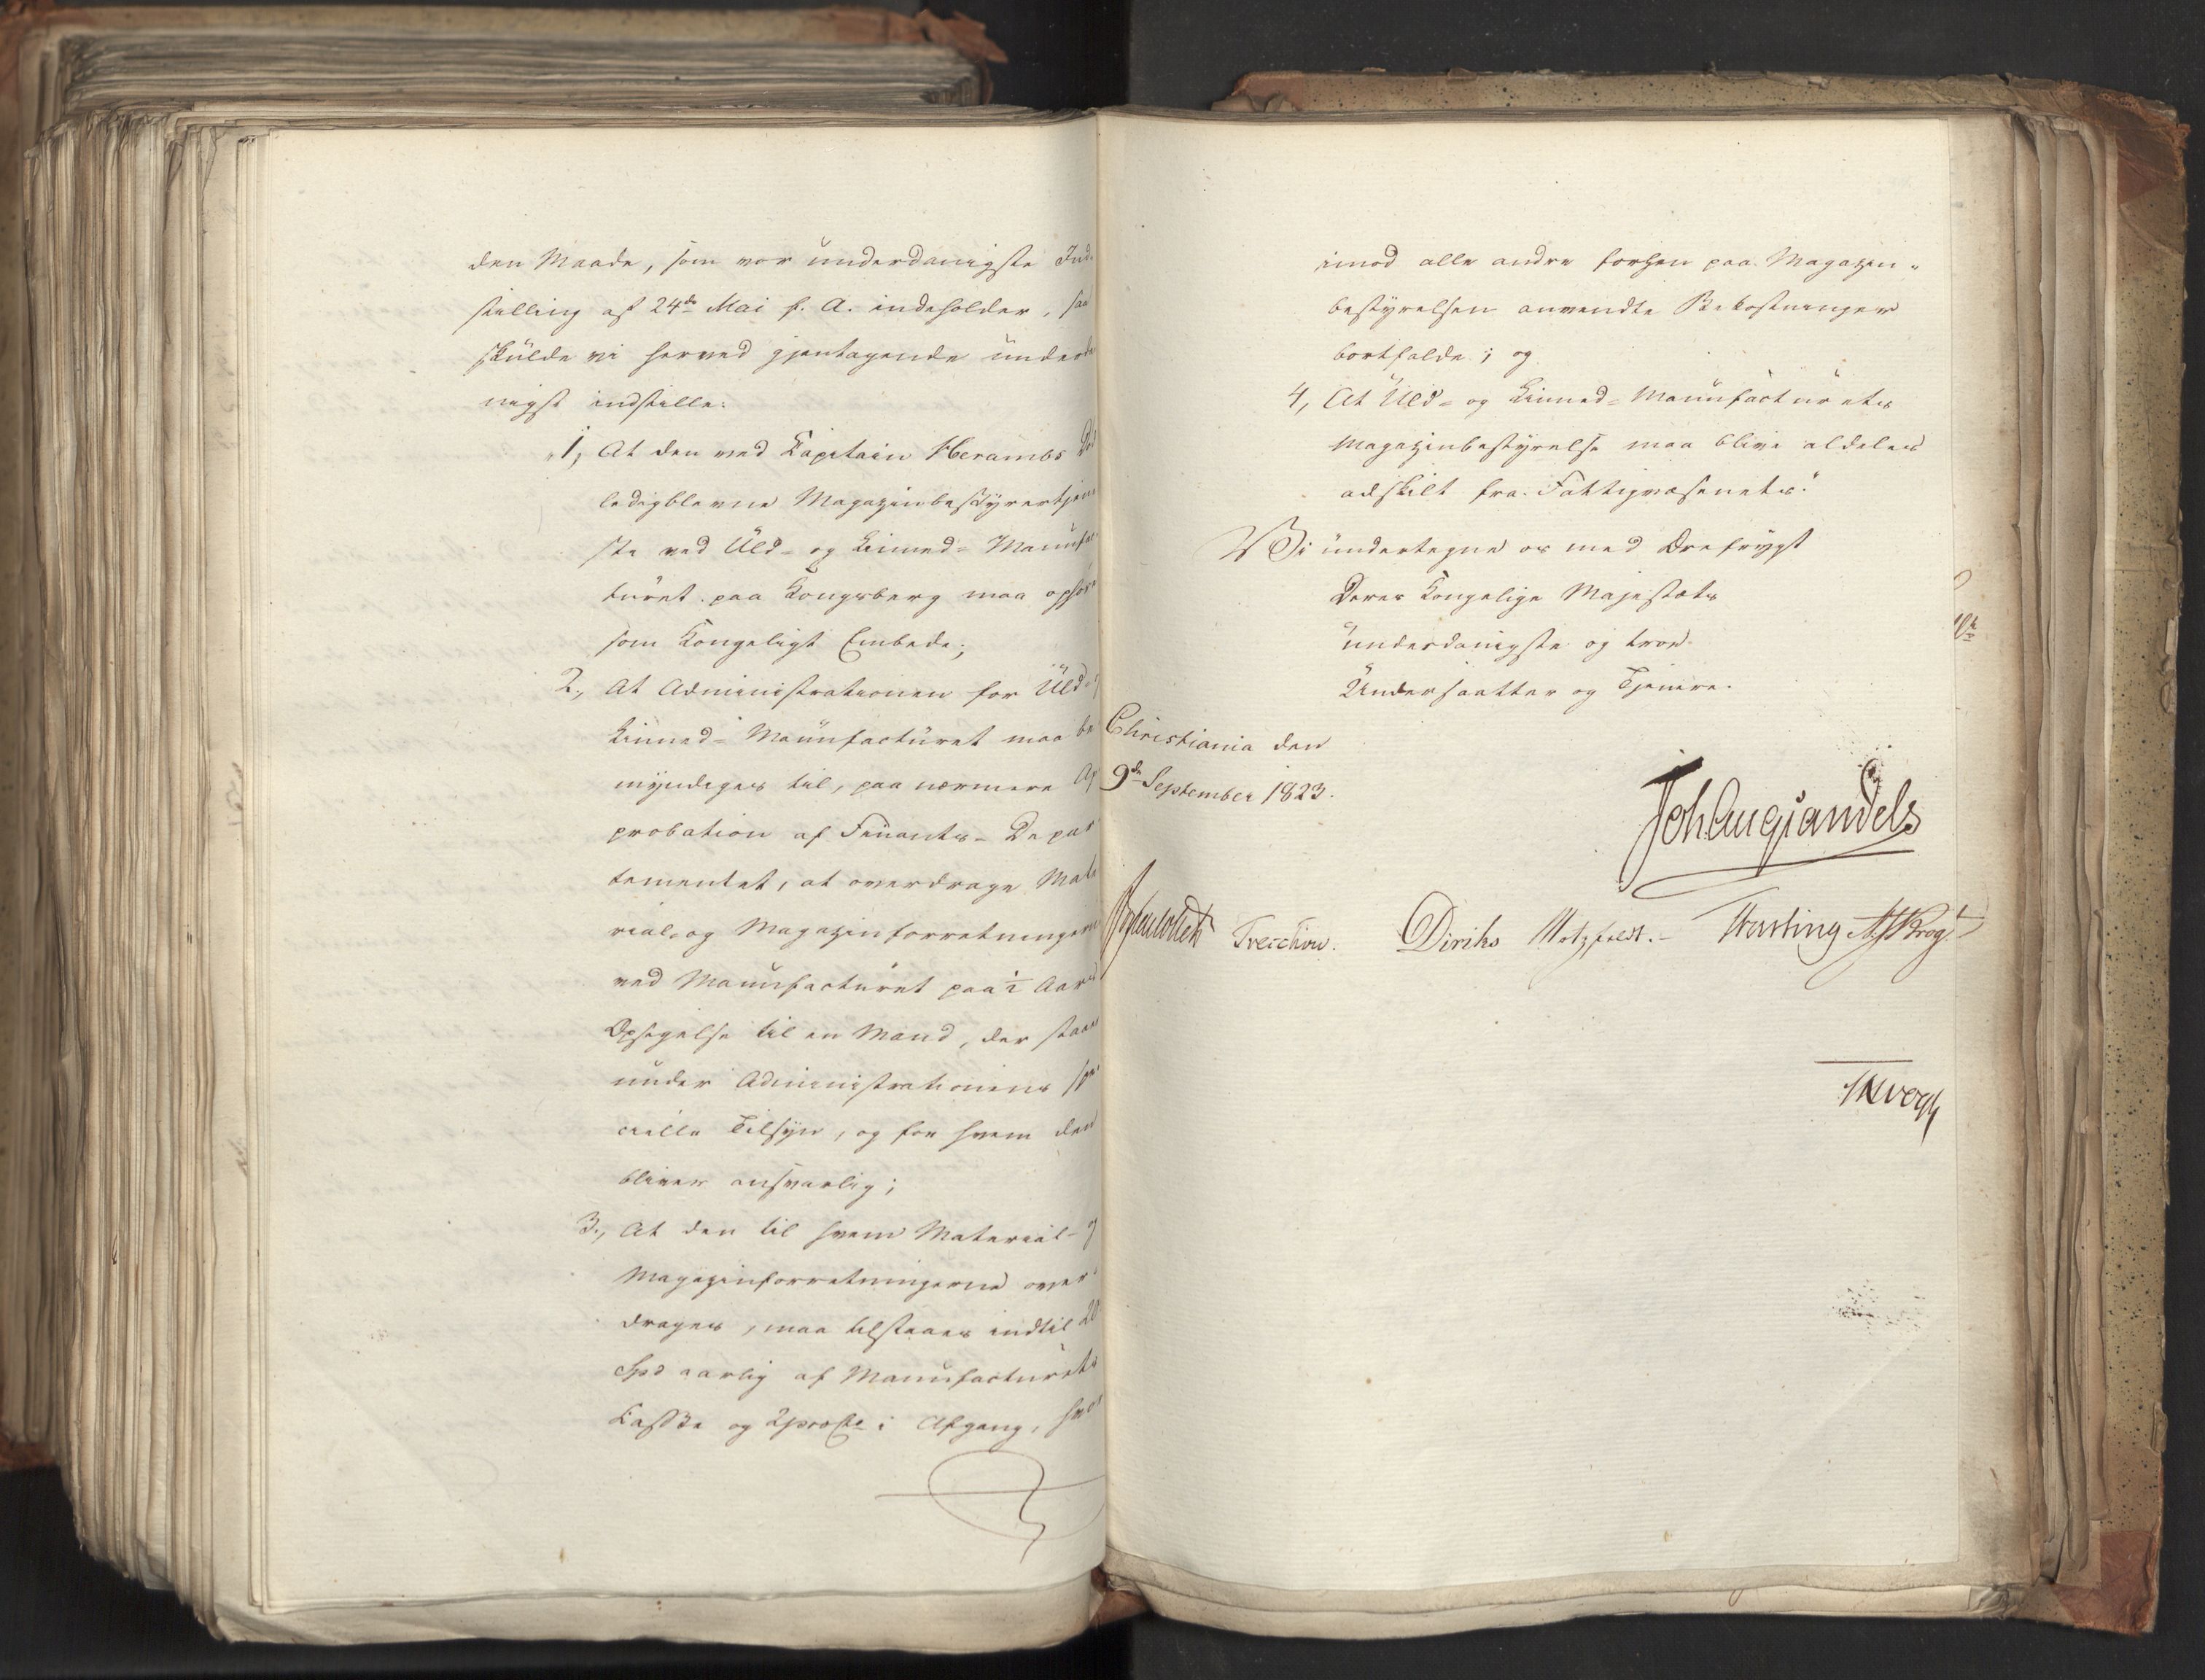 den Maade, som vor underdanigste Ind-
stilling af 24de Mai f. A. indeholder, saa
skulde vi herved gjentagende underda
nigst indstille:
„1, At den ved Kapitain Herambs Død
ledigblevne Magazinbestyrertjene
ste ved Uld- og Linned-Manufac
turet paa Kongsberg maa ophøre
som Kongeligt Embede;
2., At Administrationen for Uld- og
Linned-Manufacturet maa be
myndiges til, paa nærmere Ap
probation af Finants-Depar
tementet, at overdrage Mate
rial- og Magazinforretningerne
ved Manufacturet paa ½ Aars
Opsigelse til en Mand, der staaer
under Administrationens spe
cielle Tilsyn, og for hvem den
bliver ansvarlig;
3., At den til hvem Material- og
Magazinforretningerne over-
drages, maa tilstaaes indtil 20
Spd aarlig af Manufacturets
Kasse og i Afgang, hvor
imod alle andre forhen paa Magazin-
bestyrelsen anvendte Bekostninger
bortfalde; og
4, At Uld- og Linned-Manufacturets
Magazinbestyrelse maa blive aldeles
adskilt fra Fattigvæsenets."
Vi undertegne os med Ærefrygt
Deres Kongelige Majestæts
underdanigste og troe
Undersaatter og Tjenere.
Christiania den
9de September 1823.
Joh Aug Sandels
Jonas Collett Treschow. Diriks Motzfeldt.- Fasting Krog